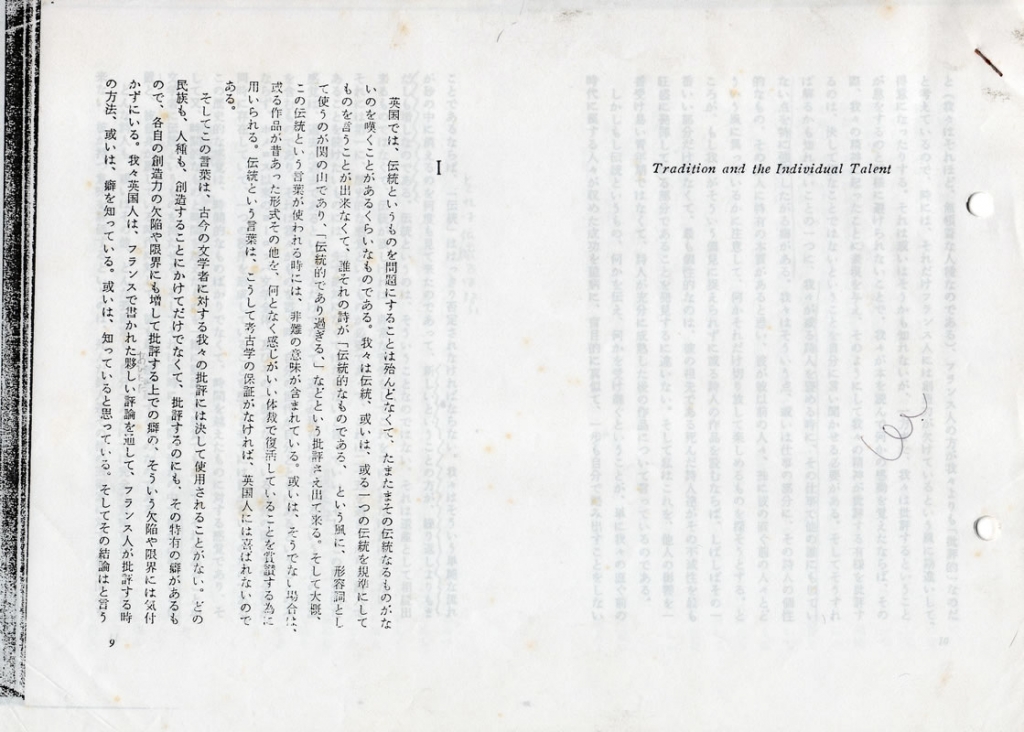 Tradition and the Individual Talent
I
英国では、伝統というものを問題にすることは殆んどなくて、たまたまその伝統なるものがな
いのを嘆くことがあるくらいなものである。我々は伝統、或いは、或る一つの伝統を規準にして
ものを言うことが出来なくて、誰それの詩が「伝統的なものである、　という風に、形容詞とし
て使うのが関の山であり、「伝統的であり過ぎる、」などという批評さえ出て来る。そして大概、
この伝統という言葉が使われる時には、非難の意味が含まれている。或いは、そうでない場合は、
或る作品が昔あった形式その他を、何となく感じがいい体裁で復活していることを賞讃する為に
用いられる。伝統という言葉は、こうして考古学の保証がなければ、英国人には喜ばれないので
ある。
そしてこの言葉は、古今の文学者に対する我々の批評には決して使用されることがない。どの
民族も、人種も、創造することにかけてだけでなくて、批評するのにも、その特有の癖があるも
ので、各自の創造力の欠陥や限界にも増して批評する上での癖の、そういう欠陥や限界には気付
かずにいる。我々英国人は、フランスで書かれた夥しい評論を通して、フランス人が批評する時
の方法、或いは、癖を知っている。或いは、知っていると思っている。そしてその結論はと言う
9